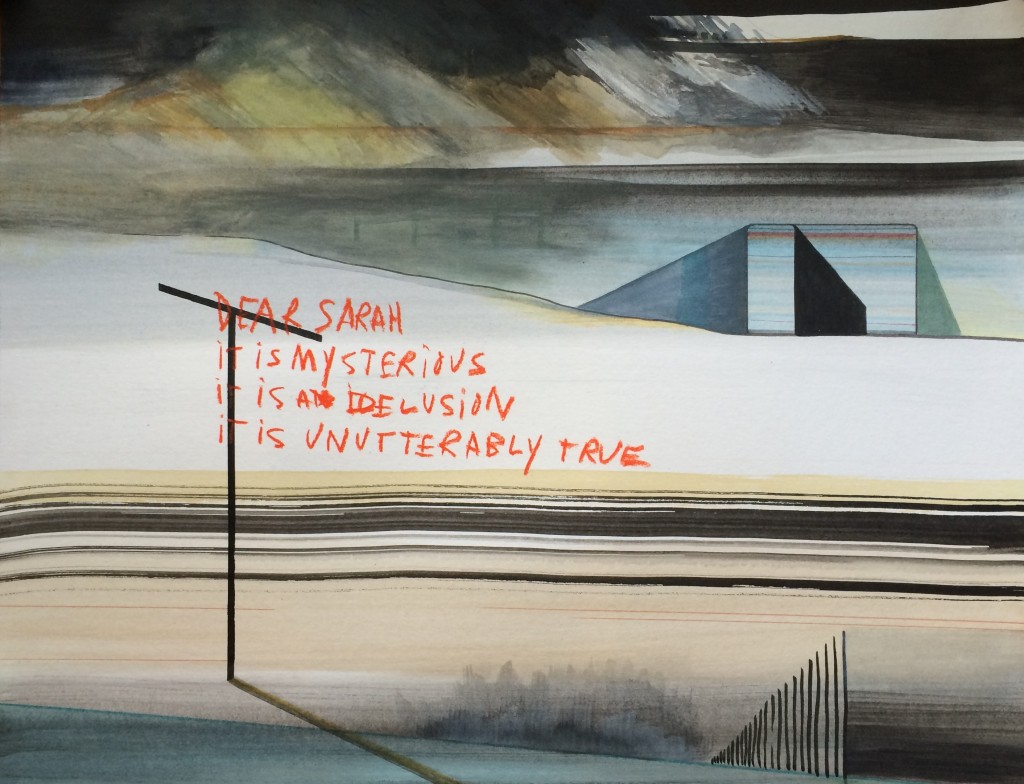 DEAR SARAH
iT iS MYSTERiOUS
iT iS DELUSiON
iT iS UNUTTERABLY TRUE